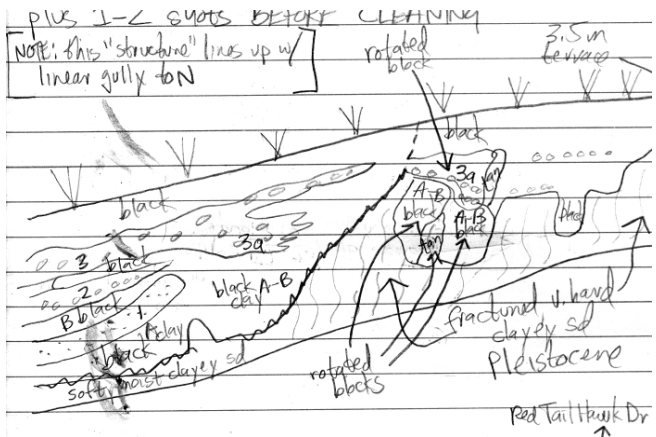 plus 1-2 shots BEFORE CLEANING
NOTE: this "structure" lines up w/
linear gully to N
rotated
block
3.5m
terrace
black
black
3a
tan
A-B
black
tan
A-B
black
black
3a
3
black
2
B black
1
A clay
black
black A-B
clay
soft, moist clayey sd
rotated
blocks
fractured v. hard
clayey sd
Pleistocene
Red Tail Hawk Dr